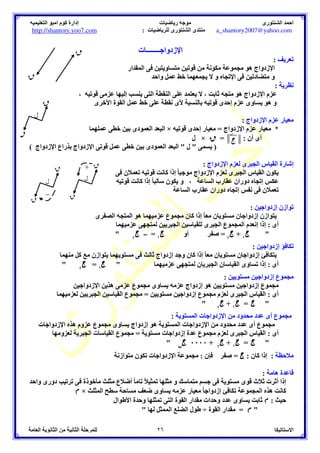 احمد الشنتورى
موجه رياضيات
إدارة كوم أمبو التعليميه
a_shantory2007@yahoo.com
منتدى الشنتورى للرياضيات :
http://shantory.yoo7.com
الإزدواجـــــــات
تعريف :
الإزدواج هو مجموعة مكونة من قوتين متساويتين فى المقدار
و متضادتين فى الإتجاه و لا يجمعهما خط عمل واحد
نظرية :
عزم الإزدواج هو متجه ثابت ، لا يعتمد على النقطة التى ينسب إليها عزمى قوتيه ،
و هو يساوى عزم إحدى قوتيه بالنسبة لأى نقطة على خط عمل القوة الأخرى
معيار عزم الإزدواج :
* معيار عزم الإزدواج = معيار إحدى قوتيه × البعد العمودى بين خطى عملهما
أى أن : || ج || = ق × ل
( يسمى " ل " البعد العمودى بين خطى عمل قوتى الازدواج بذراع الإزدواج )
إشارة القياس الجبرى لعزم الإزدواج :
يكون القياس الجبرى لعزم الإزدواج موجباً إذا كانت قوتيه تعملان فى
عكس إتجاه دوران عقارب الساعة ، و يكون سالباً إذا كانت قوتيه
تعملان فى نفس إتجاه دوران عقارب الساعة
توازن إزدواجين :
يتوازن إزدواجان مستويان معاً إذا كان مجموع عزميهما هو المتجه الصفرى
أى : إذا إنعدم المجموع الجبرى للقياسين الجبريين لمتجهى عزميهما
" ج١ + ج٢ = صفر أو ج١ = – ج٢ "
تكافؤ إزدواجين :
يتكافئ إزدواجان مستويان معاً إذا كان وجد إزدواج ثالث فى مستويهما يتوازن مع كل منهما
أى : إذا تساوى القياسان الجبريان لمتجهى عزميهما " ج١ = ج٢ "
مجموع إزدواجين مستويين :
مجموع إزدواجين مستويين هو إزدواج عزمه يساوى مجموع عزمى هذين الإزدواجين
أى : القياس الجبرى لعزم مجموع إزدواجين مستويين = مجموع القياسين الجبريين لعزميهما
" ج = ج١ + ج٢ "
مجموع أى عدد محدود من الإزدواجات المستوية :
مجموع أى عدد محدود من الإزدواجات المستوية هو إزدواج يساوى مجموع عزوم هذه الإزدواجات
أى : القياس الجبرى لعزم مجموع عدة إزدواجات مستوية = مجموع القياسات الجبرية لعزومها
" ج = ج١ + ج٢ + ٠٠٠٠ + جن "
ملاحظة : إذا كان : ج = صفر فإن : مجموعة الإزدواجات تكون متوازنة
قاعدة هامة :
إذا أثرت ثلاث قوى مستوية فى جسم متماسك و مثلها تمثيلاً تاماً أضلاع مثلث مأخوذة فى ترتيب دورى واحد
كانت هذه المجموعة تكافئ إزدواجاً معيار عزمه يساوى ضعف مساحة سطح المثلث × م
حيث : م ثابت يساوى عدد وحدات مقدار القوة التى تمثلها وحدة الأطوال
" م = مقدار القوة ÷ طول الضلع الممثل لها "
الاستاتيكا
٢٦
للمرحلة الثانية من الثانوية العامة